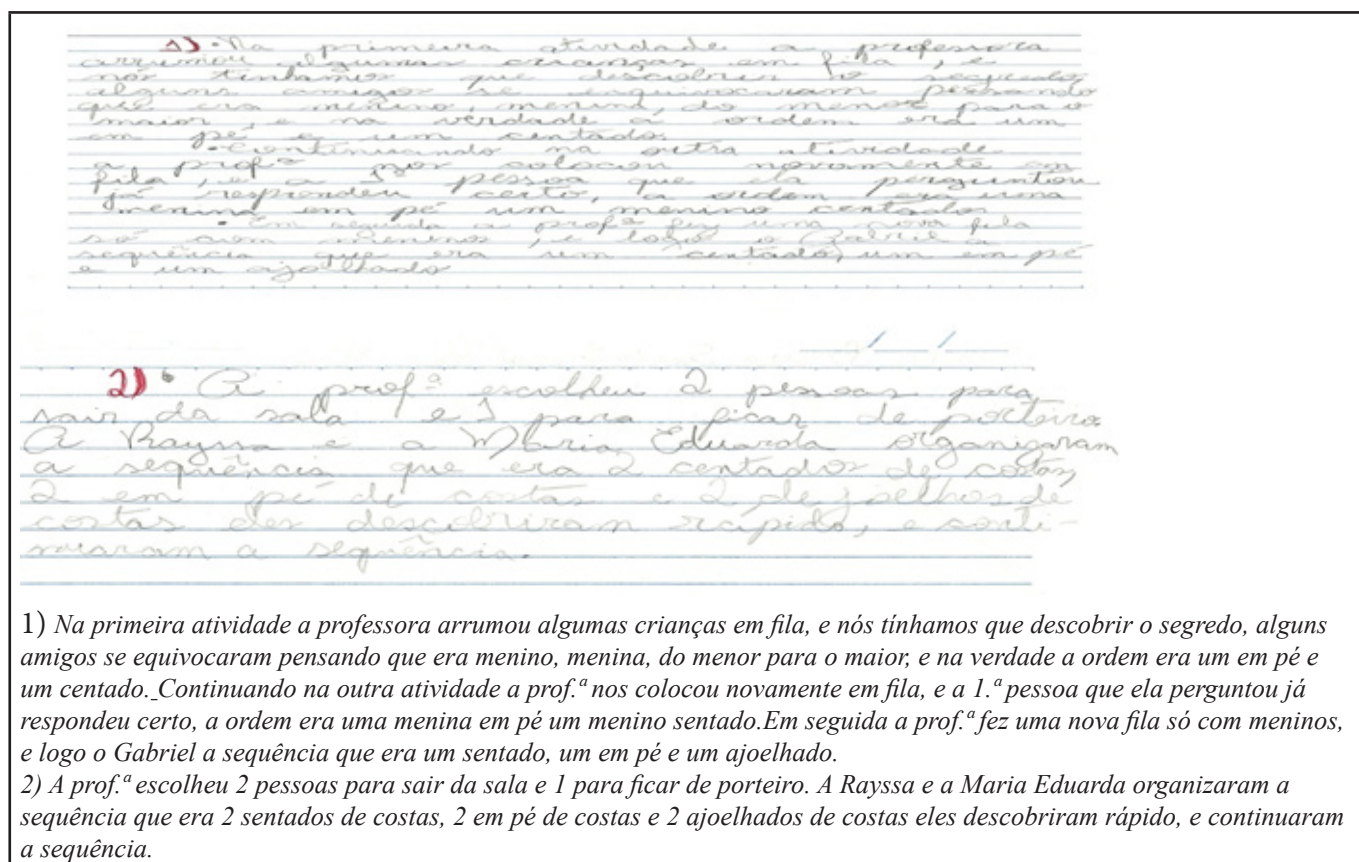 1) • Na primeira atividade a professora
arrumou algumas crianças em fila, e
nós tínhamos que descobrir o segredo,
alguns amigos se enquivocaram pessando
que era menino, menina, do menor para o
maior, e na verdade a ordem era um
em pé e um centado.
• Continuando na outra atividade
a profª nos colocou novamente em
fila, e a 1ª pessoa que ela perguntou
já respondeu certo, a ordem era uma
menina em pé um menino centado.
• Em seguida a profª fez uma nova fila
só com meninos, e logo o Gabriel a
sequência que era um centado, um em pé
e um ajoelhado
2) • A profª escolheu 2 pessoas para
sair da sala e 1 para ficar de porteiro.
A Rayssa e a Maria Eduarda organizaram
a sequência que era 2 centados de costas,
2 em pé de costas e 2 de joelhos de
costas eles descobriram rápido, e conti-
nuaram a sequência.
1) Na primeira atividade a professora arrumou algumas crianças em fila, e nós tínhamos que descobrir o segredo, alguns
amigos se equivocaram pensando que era menino, menina, do menor para o maior, e na verdade a ordem era um em pé e
um centado._Continuando na outra atividade a prof.ª nos colocou novamente em fila, e a 1.ª pessoa que ela perguntou já
respondeu certo, a ordem era uma menina em pé um menino sentado.Em seguida a prof.ª fez uma nova fila só com meninos,
e logo o Gabriel a sequência que era um sentado, um em pé e um ajoelhado.
2) A prof.ª escolheu 2 pessoas para sair da sala e 1 para ficar de porteiro. A Rayssa e a Maria Eduarda organizaram a
sequência que era 2 sentados de costas, 2 em pé de costas e 2 ajoelhados de costas eles descobriram rápido, e continuaram
a sequência.